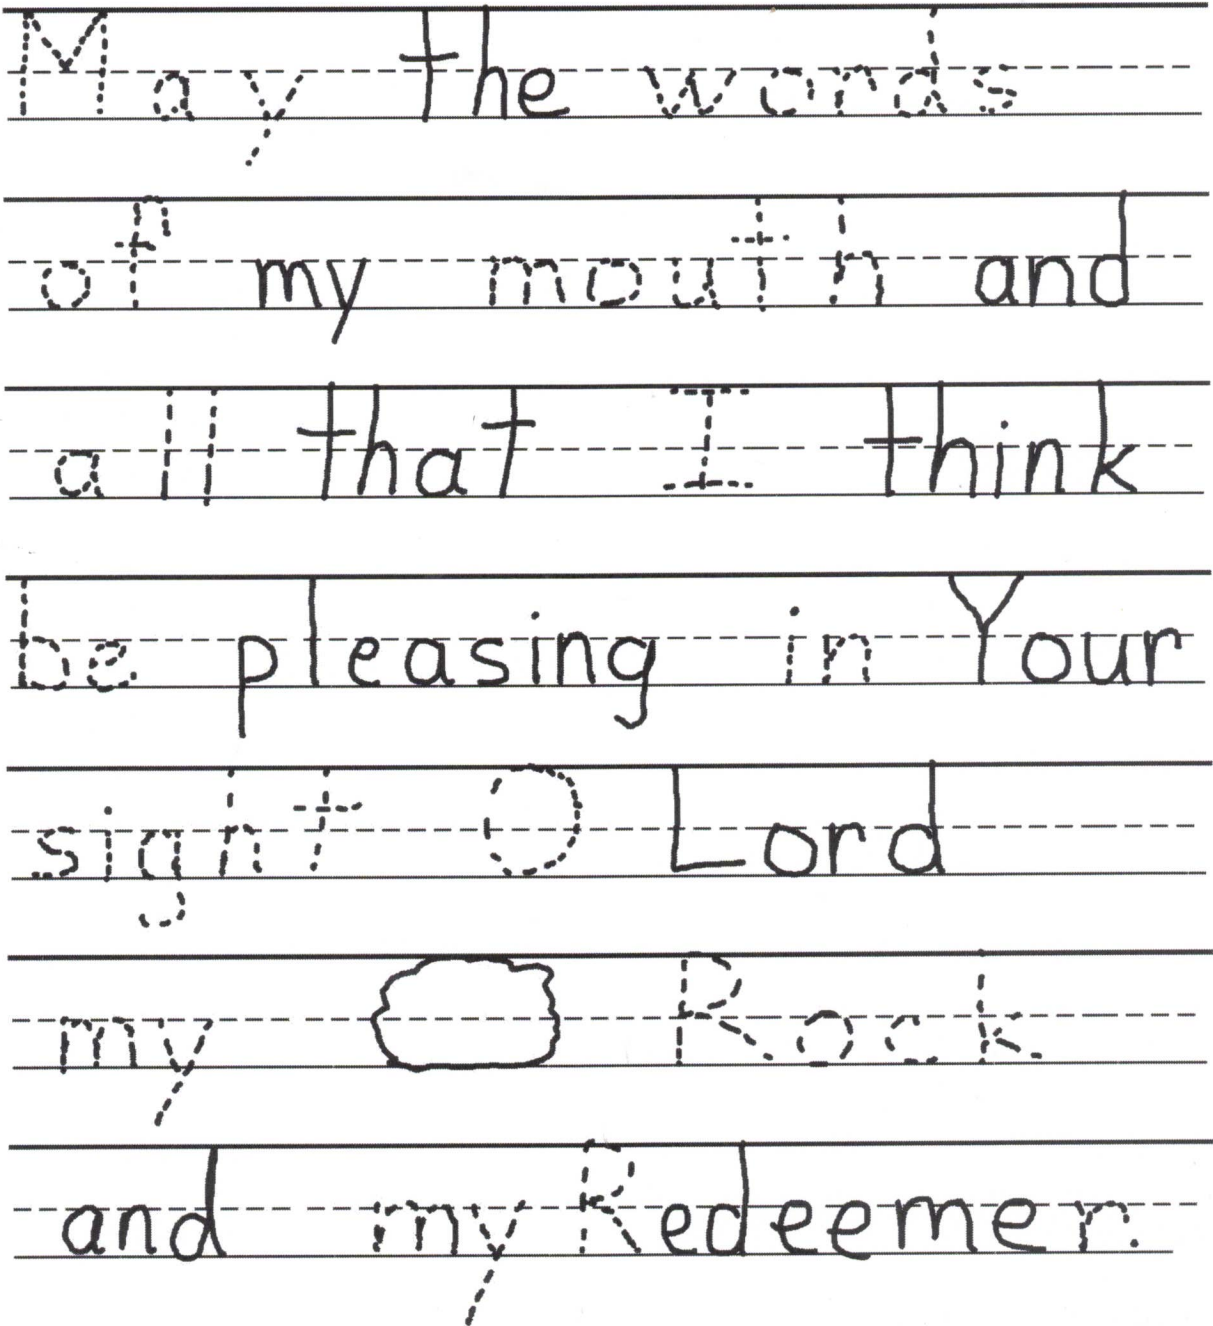 May the words
of my mouth and
all that I think
be pleasing in Your
sight O Lord
my Rock
and my Redeemer.